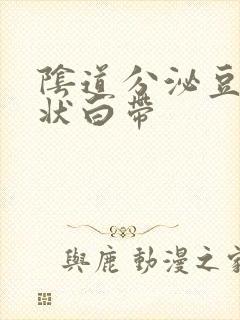 陰道分泌豆
狀白帶
與鹿動漫之家